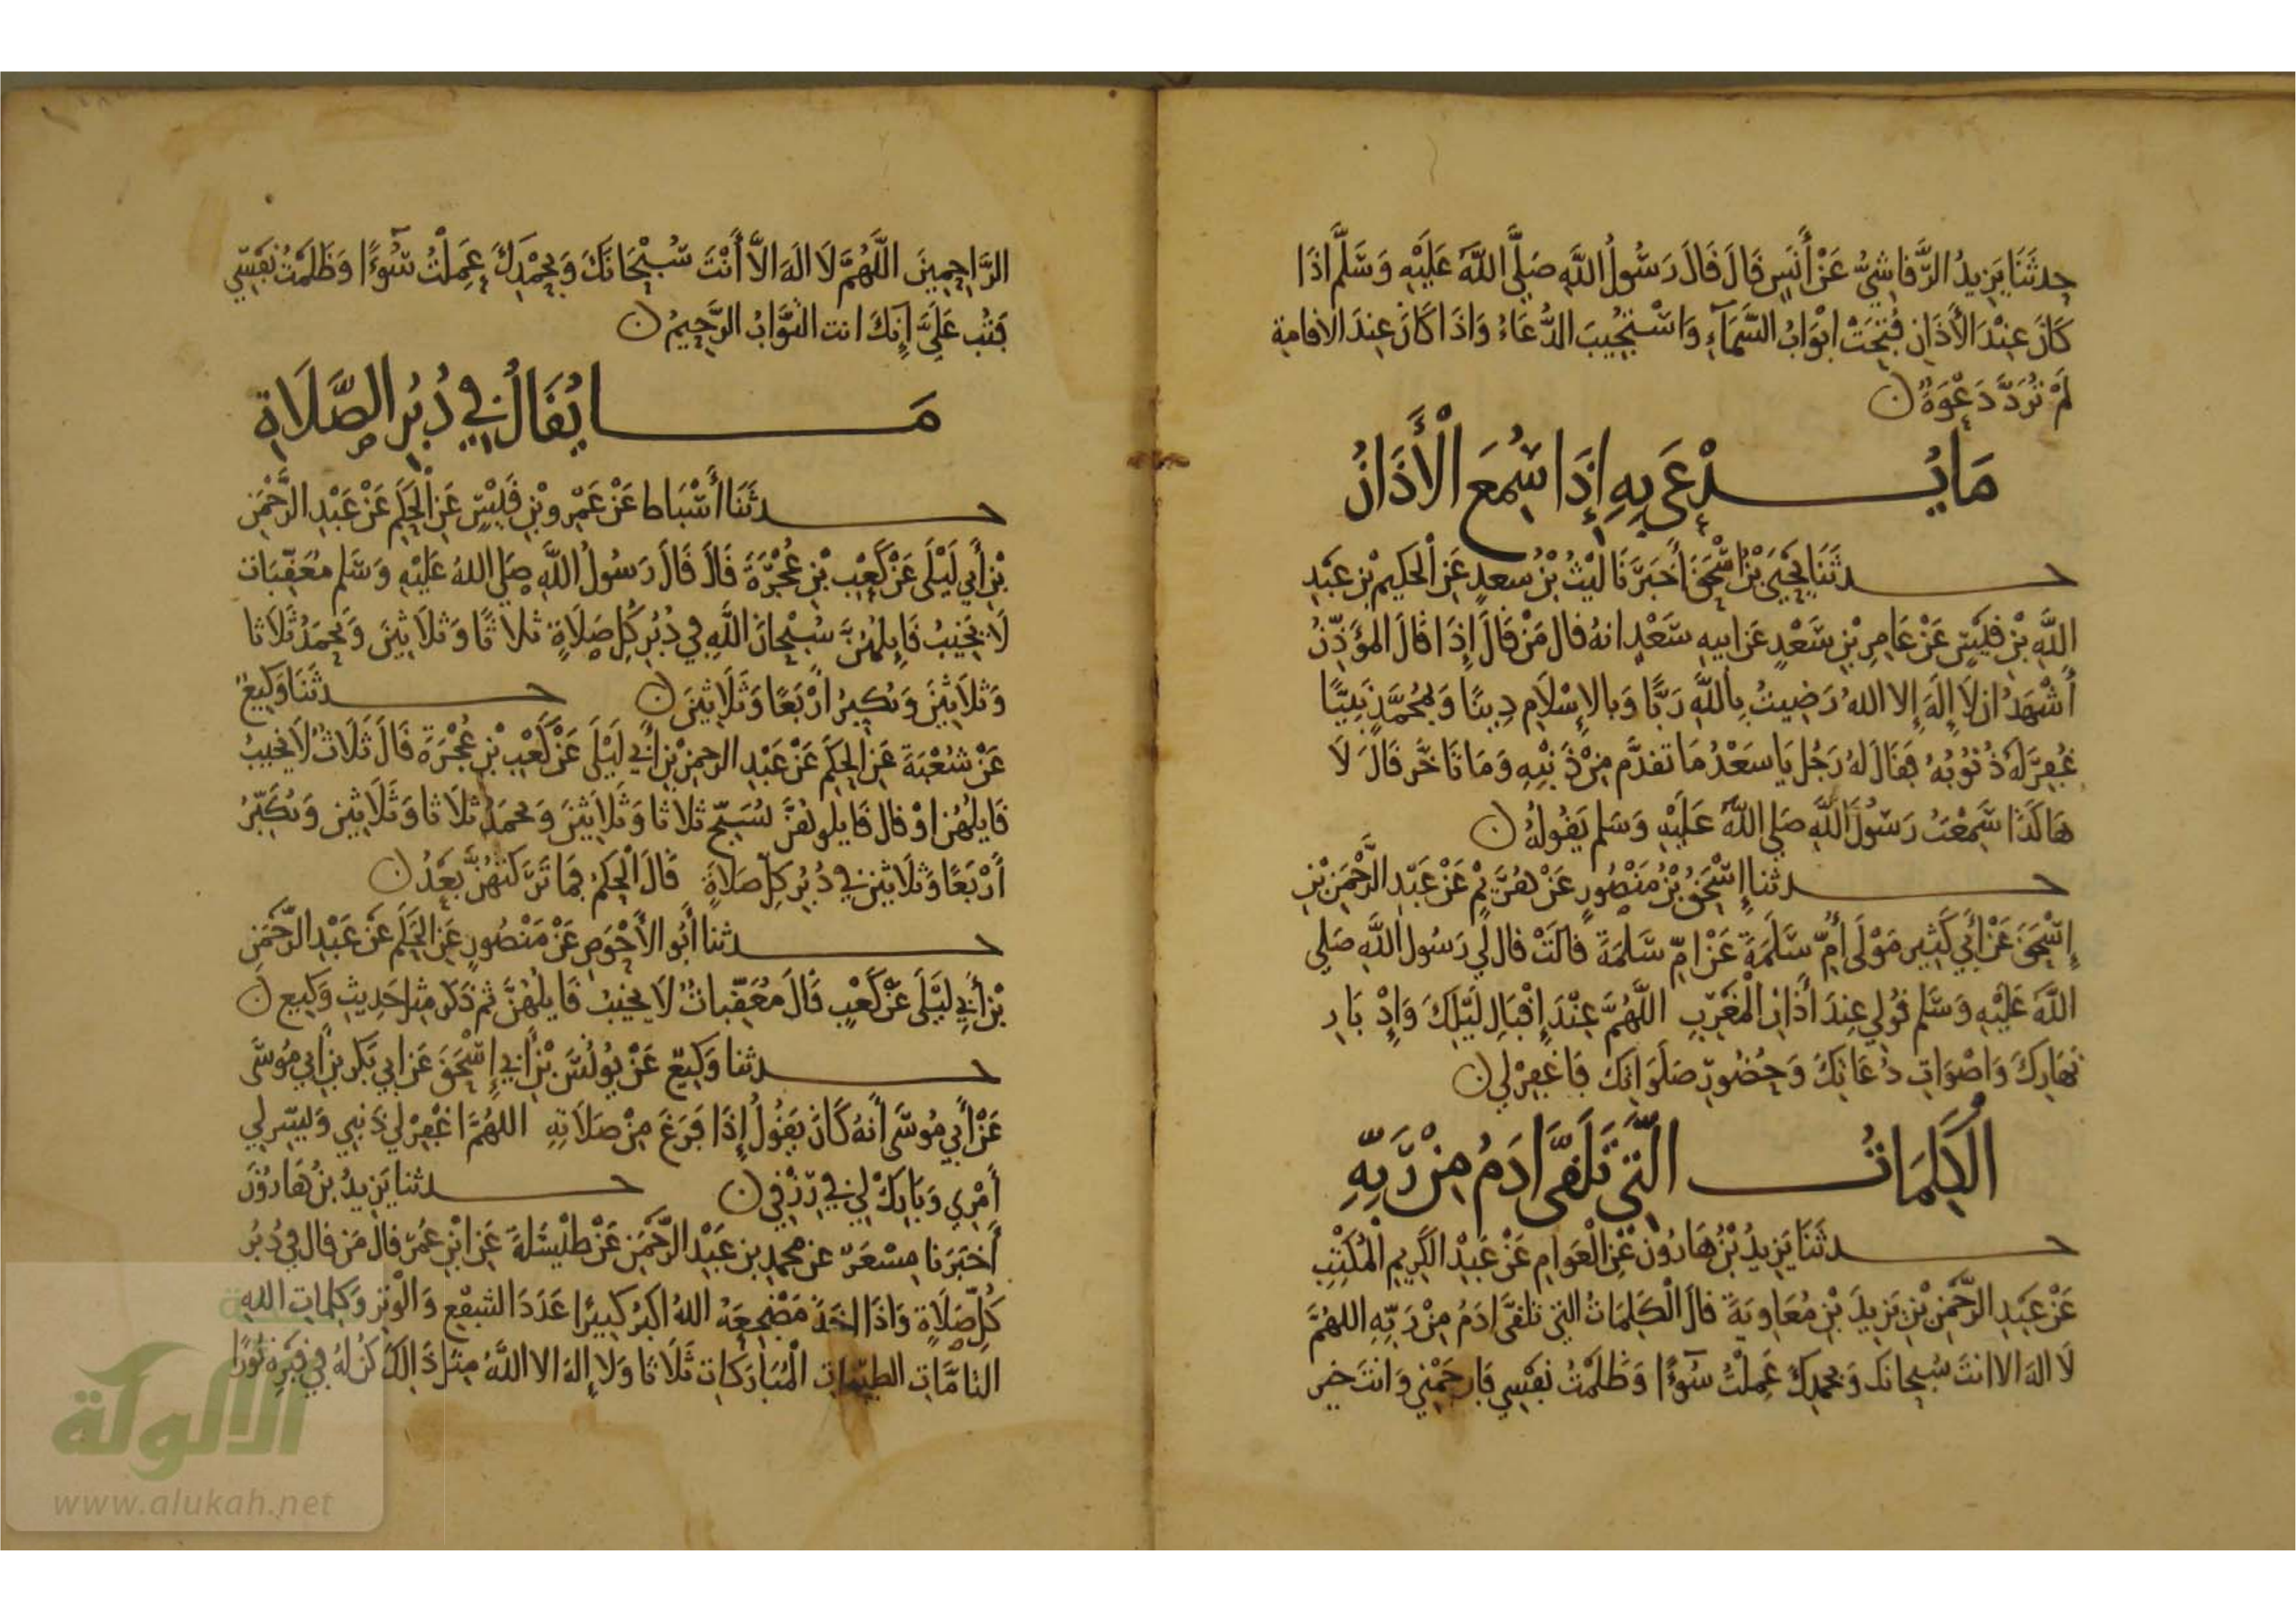 حدثَنَا يَزِيدُ الرَّقَاشِيُّ عَنْ أَنَسٍ قَالَ قَالَ رَسُولُ اللَّهِ صَلَّى اللَّهُ عَلَيْهِ وَسَلَّمَ إذَا
كَانَ عِنْدَ الْأَذَانِ فُتِحَتْ ابْوَابُ السَّمَآءِ وَاسْتُجِيبَ الدُّعَاءُ وَاذَا كَانَ عِندَ الاقامةِ
لَمْ تُرَدَّ دَعْوَةٌ ن
مَا يُدْعَى بِهِ إِذَا سُمِعَ الْأَذَانُ
حدثَنَا يَحْيَى بْنُ اسْحَقَ أَخبَرَنَا لَيْثُ بْنُ سعدٍ عَنِ الْحَكِيمِ بْنِ عَبْدِ
اللَّهِ بْنِ قَيْسٍ عَنْ عَامِرِ بْنِ سَعْدٍ عَن ابيهِ سَعْدٍ انهُ قال مَنْ قَالَ إِذَا قَالَ المؤَذِّنُ
أَشْهَدُ ان لَا إِلَهَ إِلا اللهُ رَضِيتُ بِاللَّهِ رَبًّا وَبِالإِسْلَامِ دِينًا وَبِمُحَمَّدٍ نَبِيًّا
غُفِرَ لَهُ ذُنُوبُهُ فَقَالَ لَهُ رَجُل يَا سَعْدُ مَا تقدَّم مِنْ ذَنْبِهِ وَمَا تَاخَّر قَالَ لَا
هَاكَذَا سَمِعْتُ رَسُولَ اللَّهِ صَلى اللَّهُ عَلَيْهِ وَسَلم يَقُولهُ ن
حدثنا إِسْحَقُ بْنُ مَنْصُورٍ عَنْ هُرَيْمٍ عَنْ عَبْدِ الرَّحْمَنِ بْنِ
إِسْحَقَ عَنْ أَبِي كَثِيرٍ مَوْلَى أُمِّ سَلَمَةَ عَنْ امِّ سَلمَةَ قَالَتْ قال لي رَسُول اللَّهِ صَلى
اللَّهُ عَلَيْهِ وَسَلم قُولِي عِندَ أَذَانِ الْمَغْرِبِ اللَّهُمَّ عِنْدَ إِقْبَالِ لَيْلِكَ وَإِدْبَارِ
نَهَارِكَ وَاصْوَاتِ دُعَاتِكَ وَحُضُورِ صَلَوَاتِكَ فَاغْفِرْ لي ن
الْكَلِمَاتُ الَّتِي تَلَقَّى ادَمُ مِنْ رَبِّهِ
حدثَنَا يَزِيدُ بْنُ هَارُونَ عَنِ الْعَوَامِ عَنْ عَبْدِ الكَرِيمِ الْمُكْتِبِ
عَنْ عَبْدِ الرَّحْمَنِ بْنِ يَزِيدَ بْنِ مُعَاوِيَةَ قالَ الْكَلِمَاتُ التي تَلَقَّى ادَمُ مِنْ رَبِّهِ اللهُمَّ
لَا الهَ الا انتَ سُبحانَكَ وَبحَمْدِكَ عَمِلْتُ سُوءًا وَظَلَمْتُ نَفْسِي فَارحَمْنِي وَانتَ خير
الرَّاحِمِينَ اللَّهُمَّ لَا الَهَ الاَّ أَنْتَ سُبْحَانَكَ وَبِحَمْدِكَ عَمِلْتُ سُوءًا وَظَلَمْتُ نَفْسِي
فَتُب عَلَيَّ إِنكَ انت التَّوَّابُ الرَّحِيمُ ن
مَا يُقَالُ فِي دُبُرِ الصَّلَاةِ
حدثَنَا أَسْبَاط عَنْ عَمْرِو بْنِ قَيْسٍ عَنِ الْحَكَمِ عَنْ عَبْدِ الرَّحْمَنِ
بْنِ أَبِي لَيْلَى عَنْ كَعْبِ بْنِ عُجْرَةَ قَالَ قَالَ رَسُولُ اللَّهِ صَلى اللهُ عَلَيْهِ وَسَلم مُعَقِّبَات
لَا يَخِيبُ قَايِلُهُنَّ سُبْحَانَ اللَّهِ فِي دُبُرِ كُلِ صَلَاةٍ ثَلاثًا وَثَلاَثِينَ وَتَحْمَدُ ثَلَاثا
وَثلاَثِينَ وَتُكَبِّرُ ارْبَعًا وَثَلَاثِينَ ن حدثَنَا وَكِيعٌ
عَنْ شُعْبَةَ عَنِ الحَكَمِ عَنْ عَبْدِ الرحمنِ بْنِ أَبِي لَيْلَى عَنْ كَعْبِ بْنِ عُجْرَةَ قَالَ ثَلَاثٌ لَا يَخيبُ
قَايلُهُن اوْ قال قَايلُوهُنَّ تُسَبِّح ثلاثا وَثَلَاثِينَ وَتحمَدُ ثلَاثا وَثَلَاثِينَ وَتُكَبِّرُ
أَرْبَعًا وَثَلَاثينَ في دُبُرِ كلِّ صَلاةٍ قَالَ الْحَكَمُ فمَا تَرَكتُهُنَّ بَعْدُ ن
حدثنا أَبُو الأَحْوَصِ عَنْ مَنْصُورٍ عَنِ الحَكَمِ عَنْ عَبْدِ الرَّحْمَنِ
بْنِ أَبِي لَيْلَى عَنْ كَعْبٍ قَالَ مُعَقِّبَاتٌ لَا يَخيبُ قَايلُهُنَّ ثمَّ ذَكَرَ مِثلَ حَدِيثِ وَكِيعٍ ن
حدثنا وَكِيعٌ عَنْ يُونُسَ بْنِ أَبي إِسْحَقَ عَن ابي بَكرِ بنِ ابي مُوسَى
عَنْ أَبِي مُوسَى أَنهُ كَانَ يَقُولُ إِذَا فَرَغَ مِنْ صَلاَتِهِ اللهُمَّ اغْفِرْ لي ذَنبي وَيَسِّر لي
أَمْرِي وَبَارِكْ لي في رِزْقي ن حدثنا يَزِيدُ بنُ هَارُونَ
أَخبَرَنا مِسْعَرٌ عن محمدِ بنِ عَبْدِ الرَّحْمَنِ عَنْ طَيْسَلَةَ عَنِ ابْنِ عُمَرَ قَالَ مَن قال في دُبُرِ
كُلِّ صَلَاةٍ وَاذَا اخَذَ مَضْجعَهُ اللهُ اكبرُ كبيرًا عَدَدَ الشَّفْعِ وَالْوِترِ وَكلماتِ اللهِ
التامَّاتِ الطيِّبَاتِ الْمُبَارَكَات ثَلَاثا وَلا إِلهَ الا اللَّهُ مِثلَ ذَالكَ كُنَّ لهُ في قبْرِهِ نُورًا
الألوكة
www.alukah.net